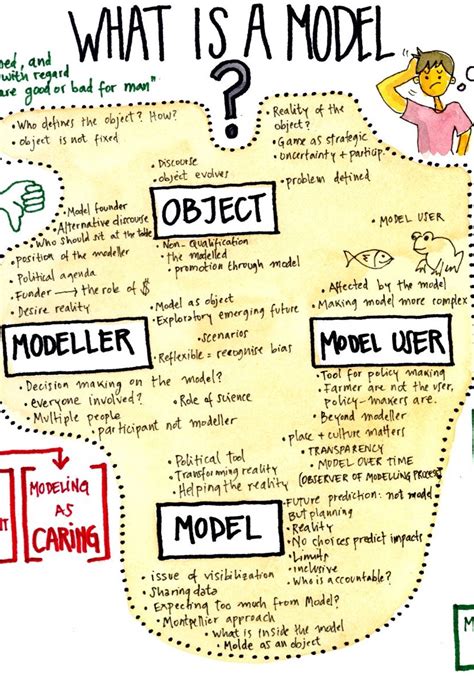 WHAT IS A MODEL
?
ned, and
with regard
are good or bad for man"
• Who defines the object? How?
• object is not fixed
• Reality of the
object?
• Game as strategic
• uncertainty + particip.
• problem defined
• Discourse
• object evolves
OBJECT
• Non-Qualification
• the modelled
• promotion through model
• Model founder
• Alternative discourse
• Who should sit at the table
• position of the modeller
• Political agenda
• Funder → the role of $
• Desire reality
• MODEL USER
• Affected by the model
• Making model more complex
• Model as object
• Exploratory emerging future
• scenarios
• Reflexible = recognise bias
MODELLER
MODEL USER
• Decision making on the model?
• everyone involved?
• Role of science
• Multiple people
• participant not modeller
• Tool for policy making
• Farmer are not the user,
policy-makers are.
• Beyond modeller
• place + culture matters
• TRANSPARENCY
• MODEL OVER TIME
(OBSERVER OF MODELLING PROCESS)
• Political tool
• Transforming reality
• Helping the reality
MODELING
AS
CARING
MODEL
• Future prediction: not model
But planning
• Reality
• No choices predict impacts
• Limits
• inclusive
• Who is accountable?
• issue of visibilization
• Sharing data
• Expecting too much from Model?
• Montpellier approach
• What is inside the model
• Molde as an object